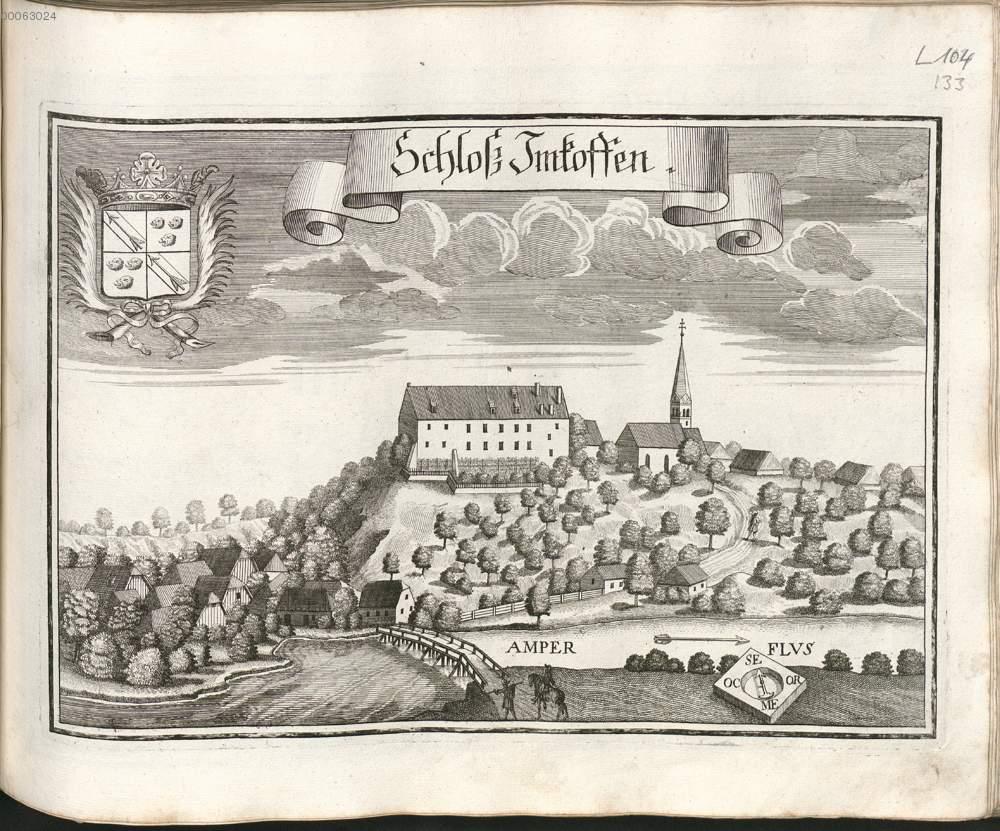 00063024
L 104
133
Schloß Imkoffen.
AMPER FLVS
SE
OC OR
ME